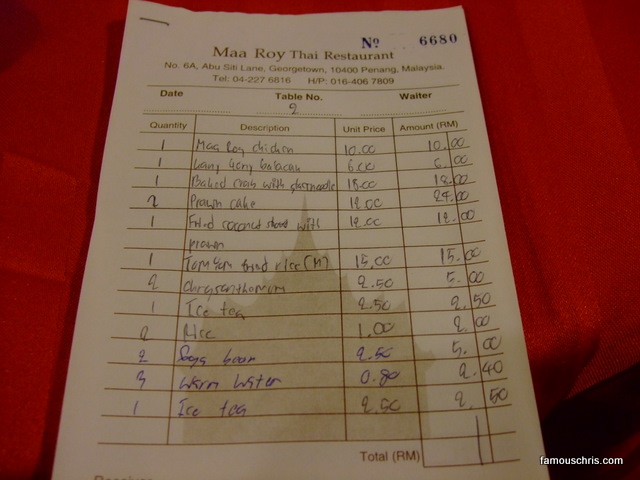 Nº 6680
Maa Roy Thai Restaurant
No. 6A, Abu Siti Lane, Georgetown, 10400 Penang, Malaysia.
Tel: 04-227 6816 H/P: 016-406 7809
Date Table No. Waiter
2
Quantity Description Unit Price Amount (RM)
1 Maa Roy chicken 10.00 10.00
1 6.00 6.00
1 Baked crab with glassnoodle 18.00 18.00
2 Prawn cake 12.00 24.00
1 Fried coconut shoot with 12.00 12.00
prawn
1 Tom Yam fried rice (M) 15.00 15.00
2 Chrysanthemum 2.50 5.00
1 Ice tea 2.50 2.50
2 Rice 1.00 2.00
2 Soya bean 2.50 5.00
3 Warm water 0.80 2.40
1 Ice tea 2.50 2.50
Total (RM)
famouschris.com